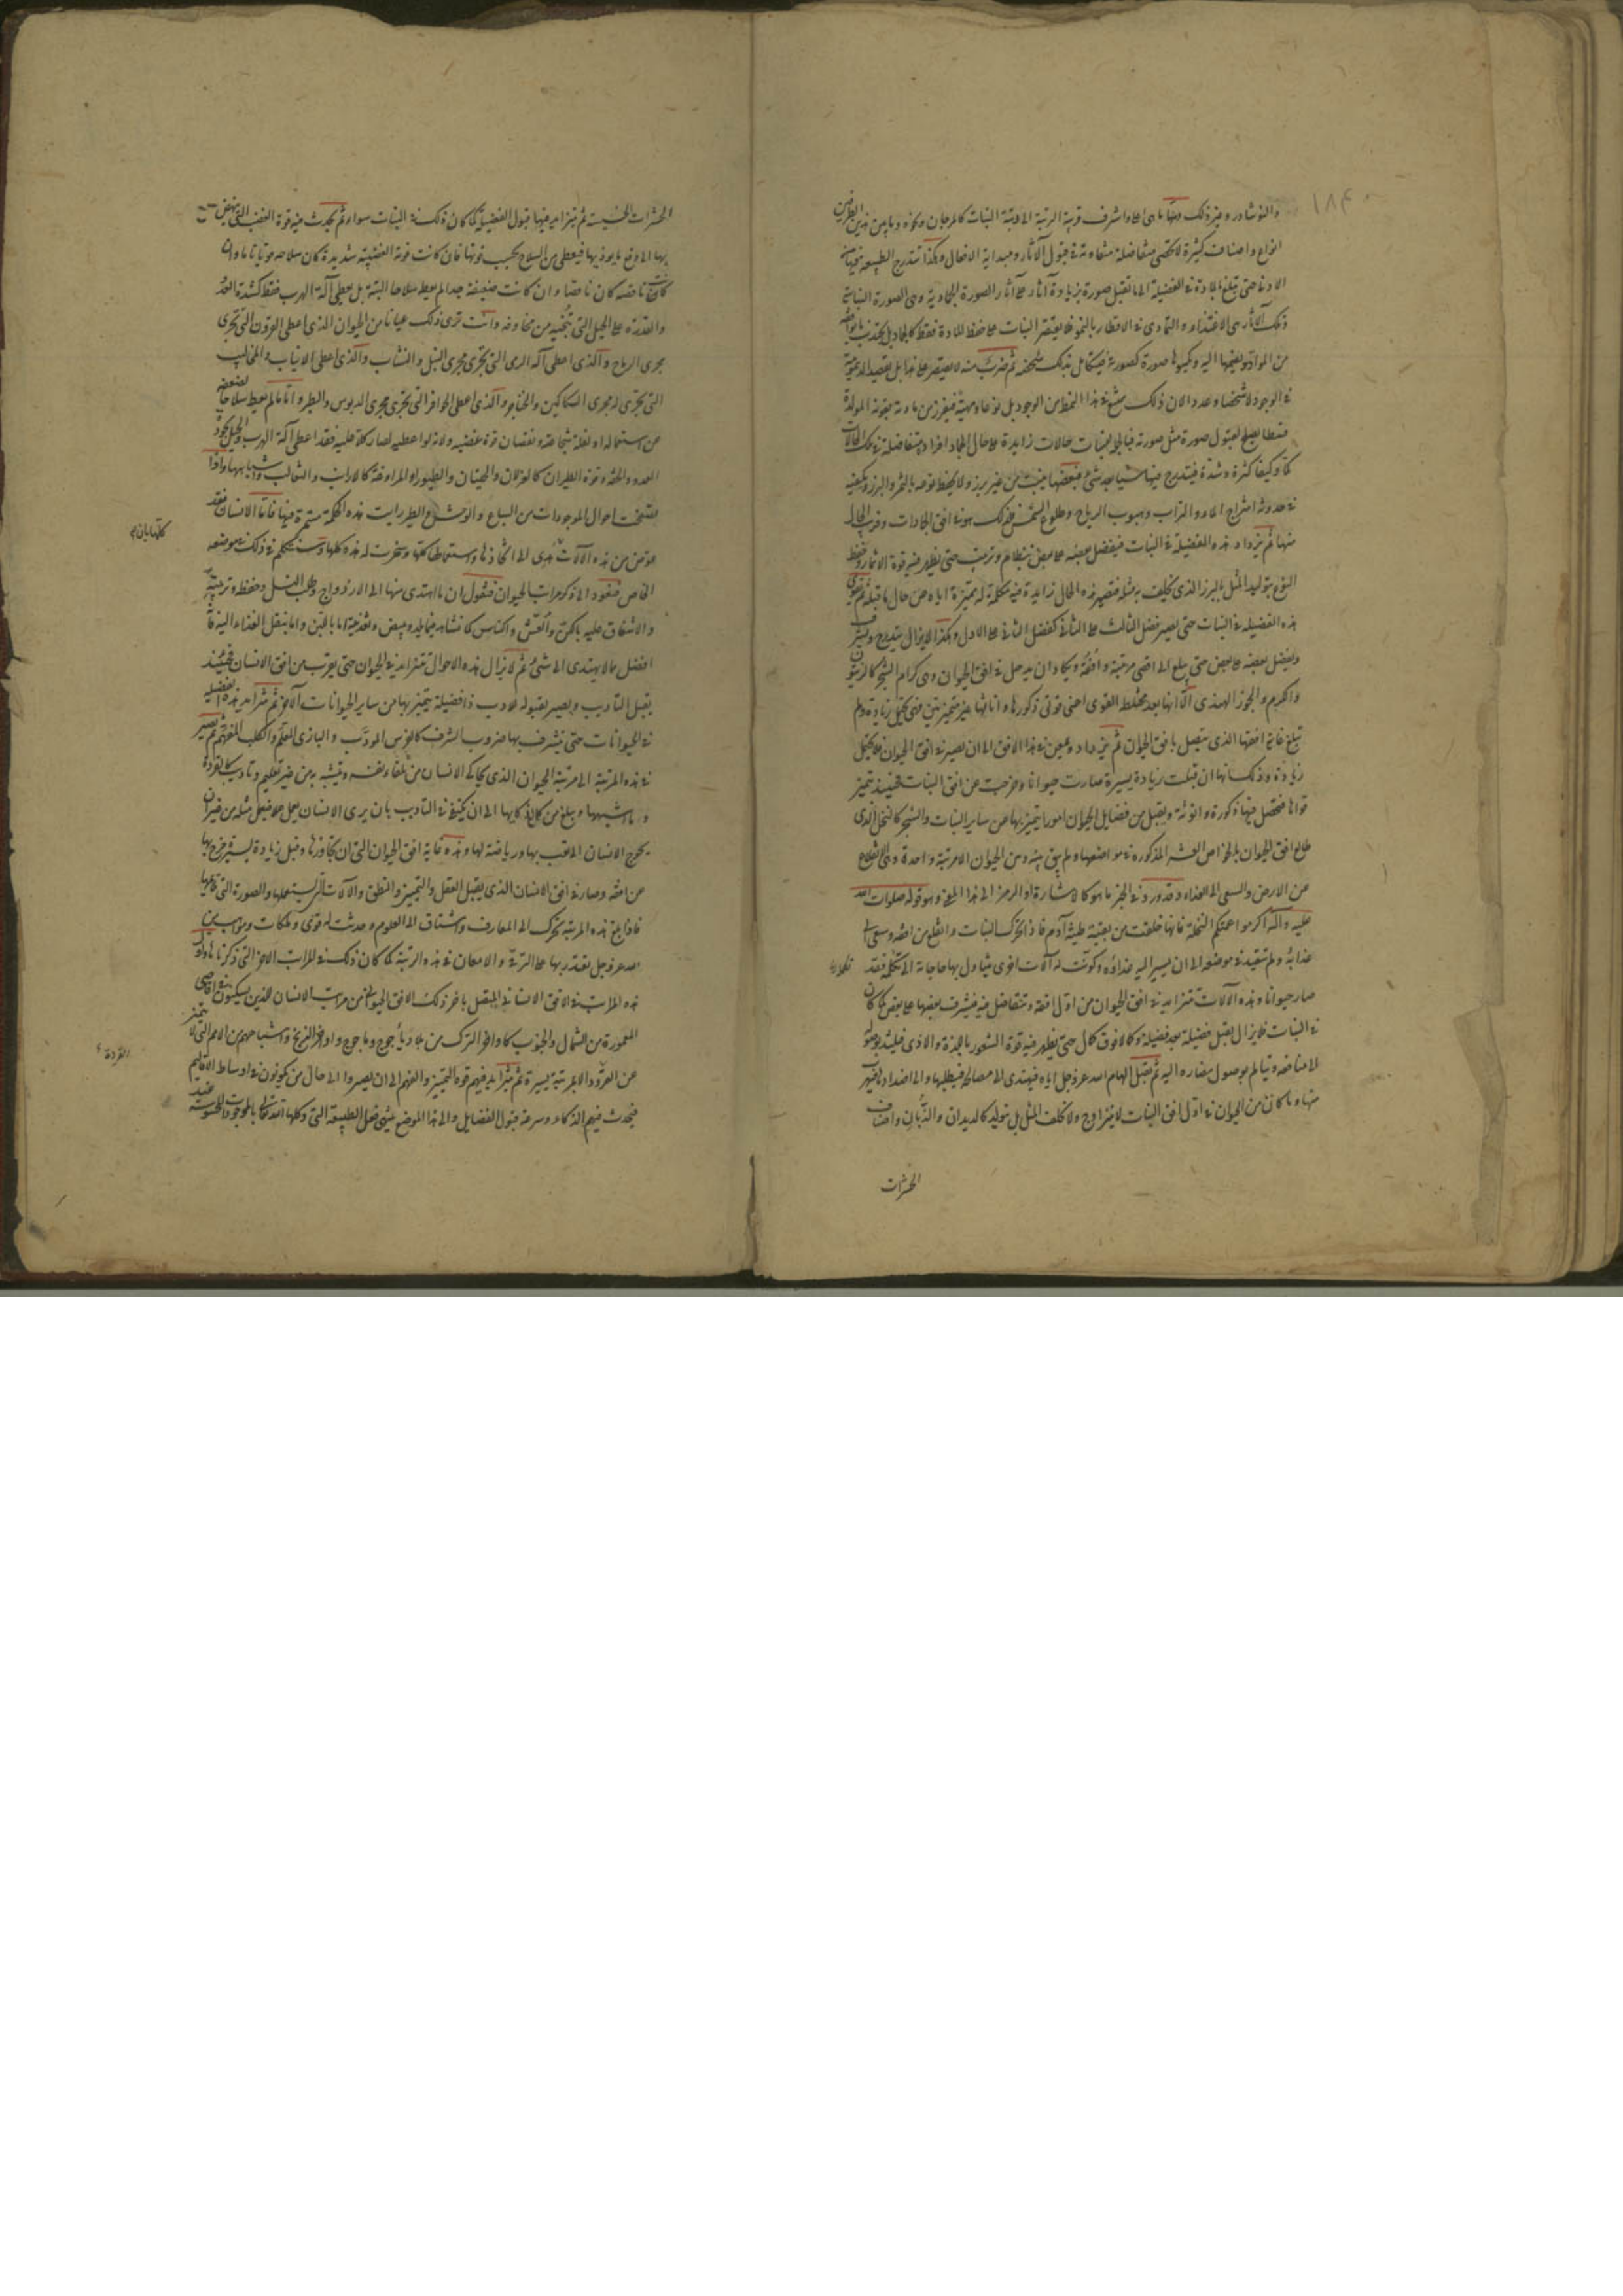 ١٨٤
والنوشادر وغير ذلك ومنها ما هى اعلا واشرف قريبة الرتبة الى رتبة النبات كالمرجان ونحوه وما بين هذين الطرفين
انواع واصناف كثيرة لا تحصى متفاضلة متفاوتة فى قبول الآثار ومبداية الافعال وهكذا تتدرج الطبيعة
حتى تبلغ المادة فى الفضيلة الى ما تقبل صورة يزيد آثار على آثار الصورة الجمادية وهى الصورة النباتية
الآثار هى الاغتذاء والتمادى فى الاقطار بالنمو فلا يقتصر النبات على حفظ المادة فقط كالجماد بل يجذب ما يوافقه
من المواد ويضمها اليه ويكسوها صورة كصورته فيتكامل بذلك شخصه ثم ضرب منه لا يقتصر على هذا بل يقصد الديمومة
فى الوجود لا شخصا وعددا لان ذلك ممتنع فى هذا النمط من الوجود بل نوعا وماهية فيفرز من مادته بقوته المولدة
قسطا يصلح لقبول صورة مثل صورته فبالجملة للنبات حالات زايدة على حال الجماد افراده متفاضلة فى تلك الحالات
كما وكيفا كثرة وشدة فيتدرج فيها شيئا بعد شئ فبعضها ينبت من غير بزر ولا يحفظ نوعه بالثمر والبزر ويكفيه
فى حدوثه امتزاج الماء والتراب وهبوب الرياح وطلوع الشمس فذلك هو فى افق الجمادات وقريب الحال
منها ثم يزداد هذه الفضيلة فى النبات فيفضل بعضه على بعض بنظام وترتيب حتى يظهر فيه قوة الاثمار وحفظ
النوع بتوليد المثل بالبزر الذى يخلف به مثله فتصير هذه الحال زايدة فيه مكملة له مميزة اياه عن حال ما قبله ثم تقوى
هذه الفضيلة فى النبات حتى يصير فضل الثالث على الثانى كفضل الثانى على الاول وهكذا لا يزال يتدرج ويشرف
ويفضل بعضه على بعض حتى يبلغ الى اقصى مرتبته وافقه ويكاد ان يدخل فى افق الحيوان وهى كرام الشجر كالزيتون
والكرم والجوز الهندى الا انها بعد مختلط القوى اعنى قوتى ذكورها واناثها غير متميزتين فهى تحتمل زيادة ولم
تبلغ غاية افقها الذى يتصل بافق الحيوان ثم يزداد ويمعن فى هذا الافق الى ان يصير فى افق الحيوان فلا يحتمل
زيادة وذلك انها ان قبلت زيادة يسيرة صارت حيوانا وخرجت عن افق النبات فحينئذ تتميز
قواها فتحصل فيها ذكورة وانوثة ويقبل من فضايل الحيوان امورا يتميز بها عن ساير النبات والشجر كالنخل الذى
طالع افق الحيوان بالخواص العشر المذكورة فى مواضعها ولم يبق بينه وبين الحيوان الا مرتبة واحدة وهى الانقلاع
من الارض والسعى الى الغذاء وقد ورد فى الخبر ما هو كالاشارة او الرمز الى هذا المعنى وهو قوله صلوات الله
عليه وآله اكرموا عمتكم النخلة فانها خلقت من بقية طينة آدم فاذا تحرك النبات وانقلع من افقه وسعى الى
غذائه ولم يتقيد فى موضعه الى ان يسير اليه غذاؤه وكونت له آلات اخرى يتناول بها حاجاته التى تكمله فقد
صار حيوانا وهذه الآلات تتزايد فى افق الحيوان من اول افقه وتتفاضل فيه فيشرف بعضها على بعض كما كان
فى النبات فلا يزال يقبل فضيلة بعد فضيلة وكمالا فوق كمال حتى يظهر فيه قوة الشعور باللذة والاذى فيلتذ بوصوله
الى منافعه ويتألم بوصول مضاره اليه ثم يقبل الهام الله عز وجل اياه فيهتدى الى مصالحه فيطلبها والى اضدادها فيهرب
منها وما كان من الحيوان فى اول افق النبات لا يتزاوج ولا يخلف المثل بل يتولد كالديدان والذبان واصناف
الحشرات
الحشرات الخسيسة ثم يتزايد فيها قبول الفضيلة كما كان ذلك فى النبات سواء ثم يحدث فيه قوة الغضب التى ينهض
بها الى دفع ما يوذيها فيعطى من السلاح بحسب قوتها فان كانت قوته الغضبية شديدة كان سلاحه قويا تاما وان
كانت ناقصة كان ناقصا وان كانت ضعيفة جدا لم يعط سلاحا البتة بل يعطى آلة الهرب فقط كشدة العدو
والقدرة على الحيل التى تنجيه من مخاوفه وانت ترى ذلك عيانا من الحيوان الذى اعطى القرون التى تجرى
مجرى الرماح والذى اعطى آلة الرمى التى تجرى مجرى النبل والنشاب والذى اعطى الانياب والمخاليب
التى تجرى له مجرى السكاكين والخناجر والذى اعطى الحوافر التى تجرى مجرى الدبوس والطبر واما ما لم يعط سلاحا لضعفه
عن استعماله او لقلة شجاعته ونقصان قوته غضبيه ولانه لو اعطيه لصار كلا عليه فقد اعطى آلة الهرب والحيل بجودة
العدو والخفة وقوة الطيران كالغزلان والحيتان والطيور او المراوغة كالارانب والثعالب واشباهها واذا
تصفحت احوال الموجودات من السباع والوحش والطير رايت هذه الحكمة مستمرة فيها فاما الانسان فقد
عوض من هذه الآلات بان هدى الى اتخاذها واستعمالها كلها وسخرت له هذه كلها وسنتكلم فى ذلك فى موضعه
الخاص فنعود الى ذكر مراتب الحيوان فنقول ان ما اهتدى منها الى الازدواج وطلب النسل وحفظه وتربيته
والاشفاق عليه بالكن والعش والكناس كما نشاهد فيما يلد ويبيض وتغذيته اما باللبن واما بنقل الغذاء اليه فانه
افضل مما لا يهتدى الى شئ ثم لا يزال هذه الاحوال تتزايد فى الحيوان حتى يقرب من افق الانسان فحينئذ
يقبل التأديب ويصير بقبوله للادب ذا فضيلة يتميز بها من ساير الحيوانات الآخر ثم تتزايد هذه الفضيلة
فى الحيوانات حتى يتشرف بها ضروب الشرف كالفرس المودب والبازى المعلم والكلب المفهم ثم يصير
فى هذه المرتبة الى مرتبة الحيوان الذى يحاكى الانسان من تلقاء نفسه ويتشبه به من غير تعليم وتاديب كالقردة
وما اشبهها ويبلغ من كمال ذكايها الى ان يكتفى فى التاديب بان يرى الانسان يعمل عملا فيعمل مثله من غير ان
يحوج الانسان الى تعب بها ورياضة لها وهذه غاية افق الحيوان التى ان تجاوزها وقبل زيادة يسيرة خرج بها
عن افقه وصار فى افق الانسان الذى يقبل العقل والتمييز والنطق والآلات التى يستعملها والصورة التى تلايمها
فاذا بلغ هذه المرتبة تحرك الى المعارف واشتاق الى العلوم وحدثت له قوى وملكات ومواهب من
الله عز وجل يقتدر بها على الترقى والامعان فى هذه الرتبة كما كان ذلك فى المراتب الاخر التى ذكرناها واول
هذه المراتب فى الافق الانسانى المتصل باخر ذلك الافق الحيوانى من مراتب الانسان الذين يسكنون فى اقاصى
المعمورة من الشمال والجنوب كاواخر الترك من بلاد يأجوج وماجوج واواخر الزنج واشباههم من الامم التى لا يتميز
عن القرود الا بمرتبة يسيرة ثم يتزايد فيهم قوة التمييز والفهم الى ان يصيروا الى حال من يكونون فى اوساط الاقاليم
فيحدث فيهم الذكاء وسرعة قبول الفضايل والى هذا الموضع ينتهى فعل الطبيعة التى وكلها الله تعالى بالموجودات المحسوسة
القردة